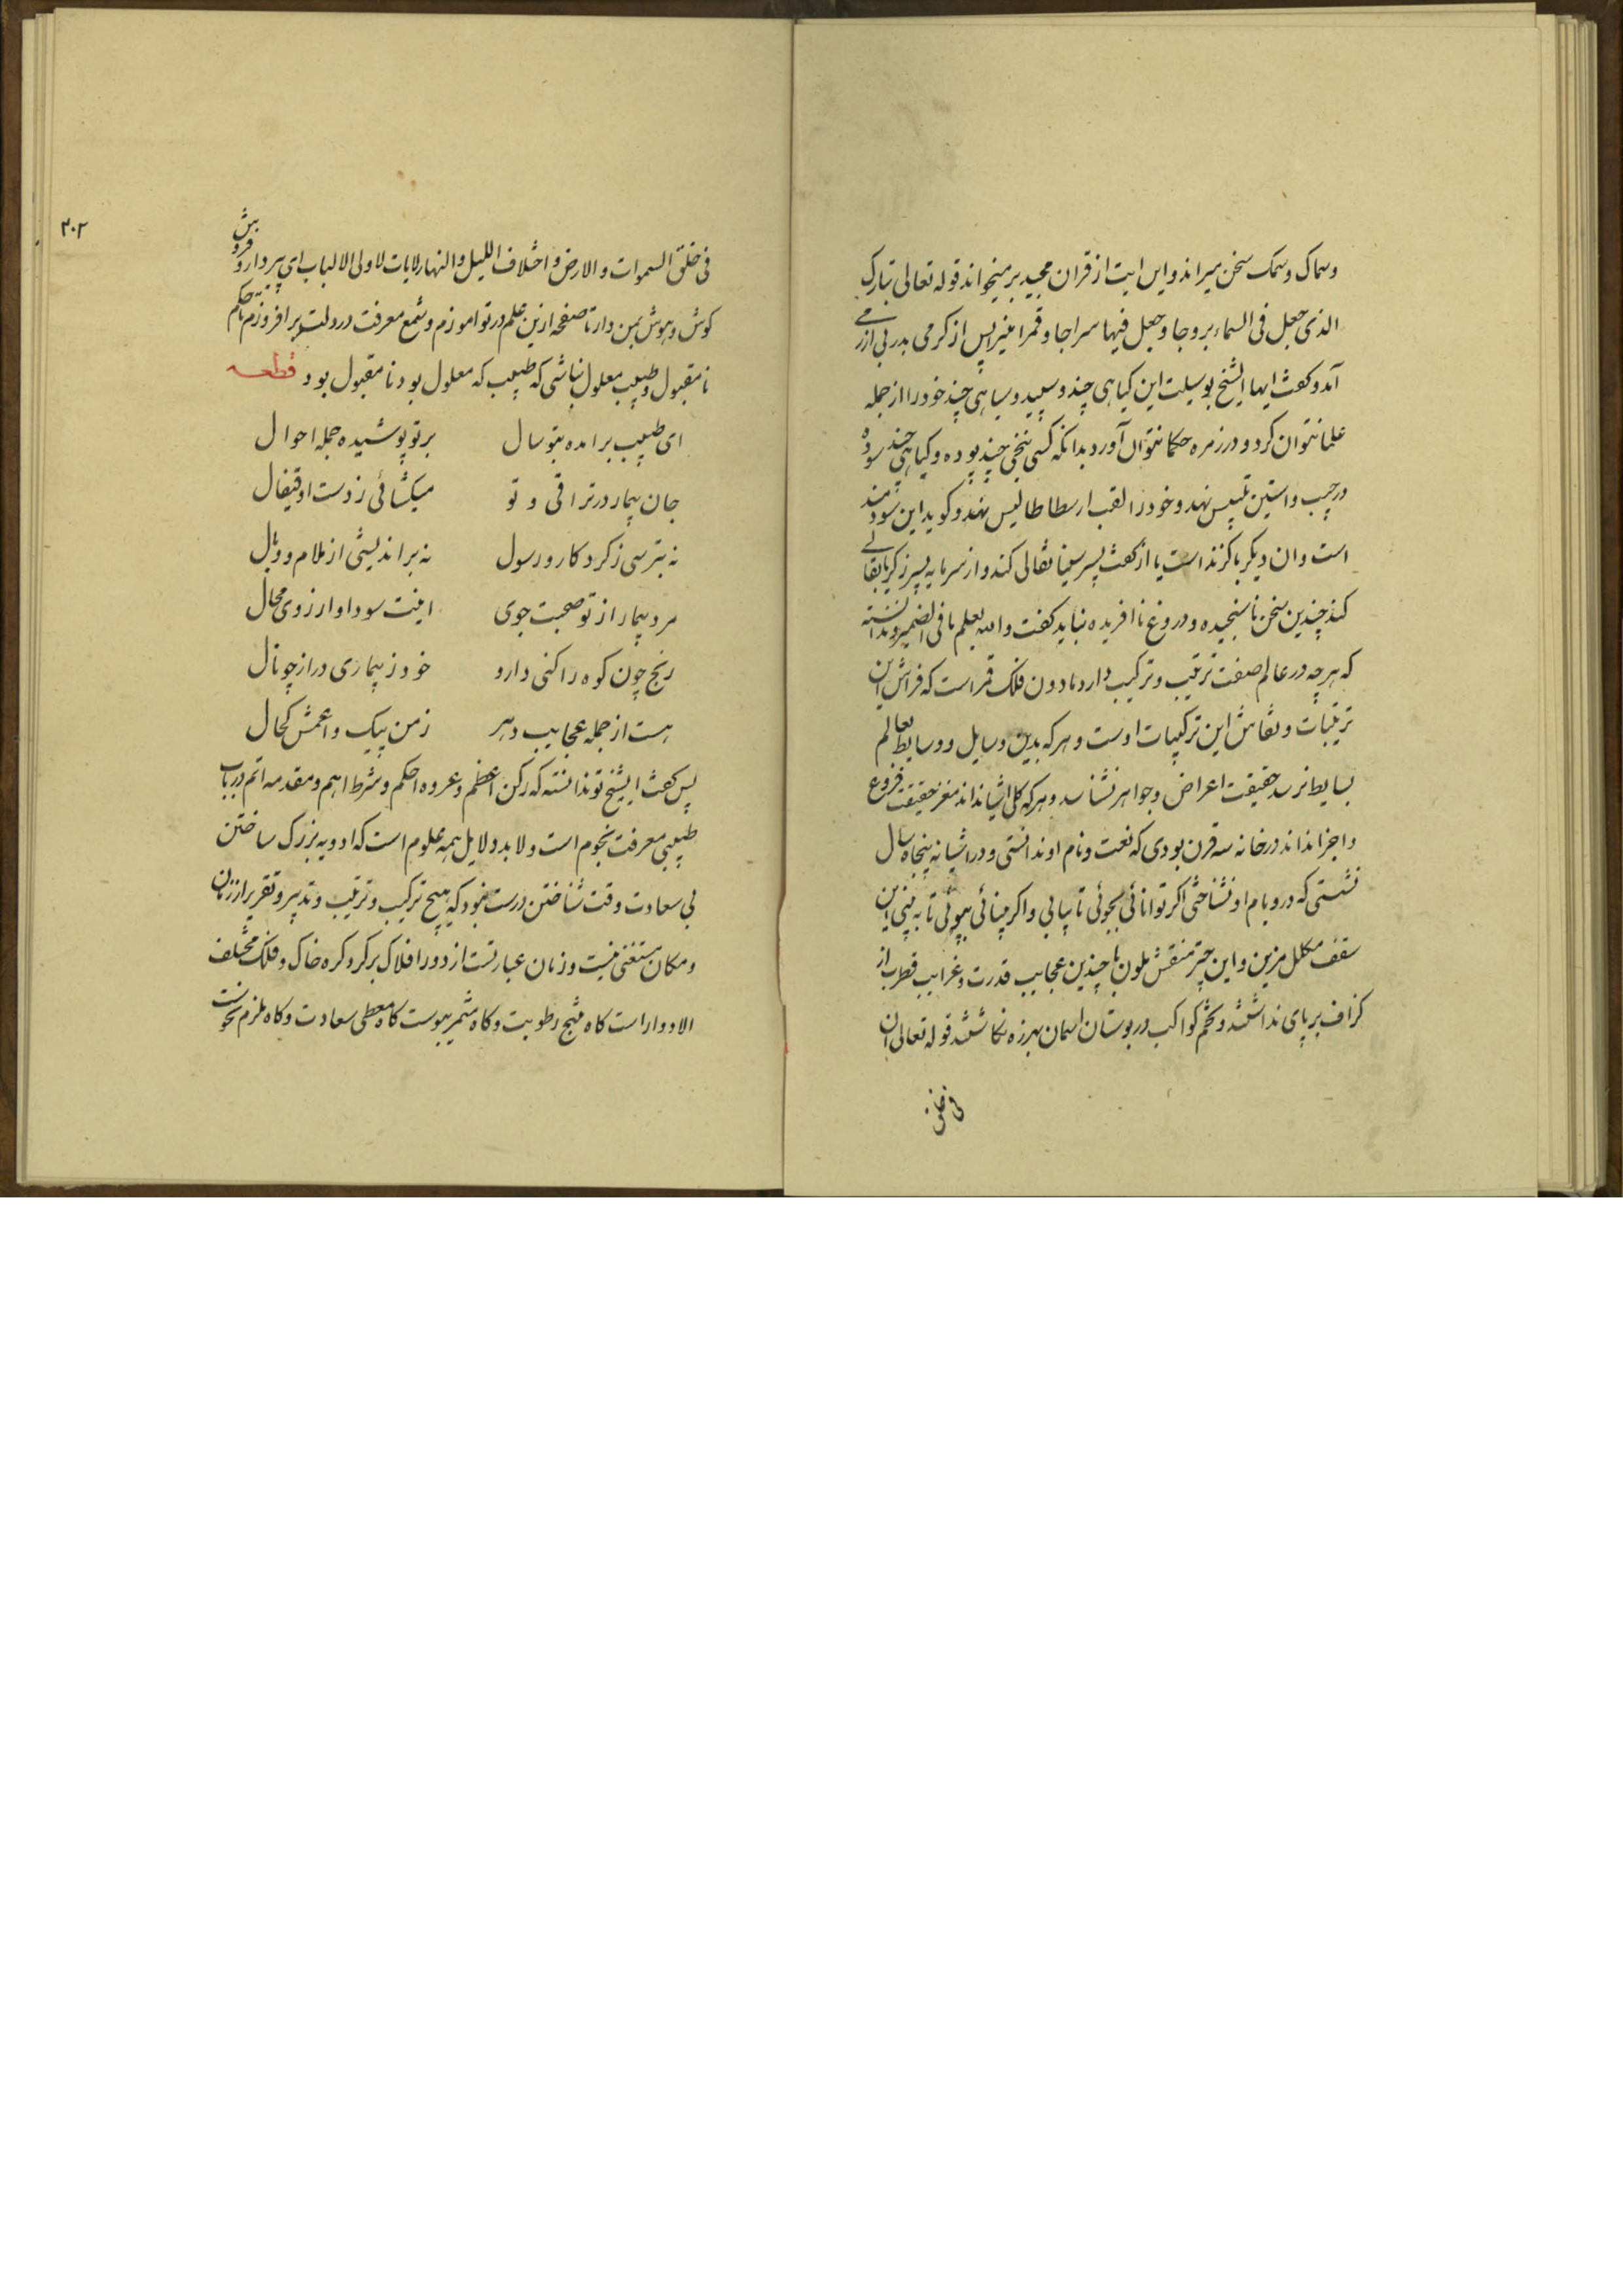 وسماک وسمک سخن میراند و این ایت از قران مجید برمیخواند قوله تعالی تبارک
الذی جعل فی السماء بروجا و جعل فیها سراجا و قمرا منیرا پس از کرمی بدر بی ازرمی
آمد و کفت ایها الشیخ بوسیلت این کیاهی چند و سپید و سیاهی چند خود را از جمله
علما نتوان کرد و در زمره حکما نتوان آورد بدانکه کسی بیخی چند بوده و کیاهی چند سوده
در جیب و استین تلبیس نهد و خود را لقب ارسطاطالیس نهد و کوید این سودمند
است و ان دیکر با کزند است یا از کفت پسر سینا نقالی کند و از سرمایه پسر زکریا بقالی
کند چندین سخن نا سنجیده و دروغ نا افریده نباید کفت والله یعلم ما فی الضمیر و ندانسته
که هرچه در عالم صفت ترتیب و ترکیب دارد مادون فلک قمر است که فراش این
ترتیبات و نقاش این ترکیبات اوست و هرکه بدین وسایل و وسایط بعالم
بسایط نرسد حقیقت اعراض و جواهر نشناسد و هرکه کلی اشیا نداند مغز حقیقت فروع
و اجزا نداند در خانه سه قرن بودی که نعت و نام او ندانستی و در اشیانه پنجاه سال
نشستی که در و بام او نشناختی اکر توانائی بجوئی تا بیابی و اکر بینائی بپوئی تا به بینی این
سقف مکلل مزین و این چتر منقش ملون با چندین عجایب قدرت و غرایب فطرت از
کزاف بر پای نداشتند و تخم کواکب در بوستان اسمان بهرزه نکاشتند قوله تعالی ان
فی خلق
۲۰۲
فی خلق السموات والارض و اختلاف اللیل والنهار لایات لاولی الالباب ای پیر دارو فروش
کوش و هوش بمن دار تا صفحه ازین علم در تو اموزم و شمع معرفت در دلت بر افروزم تا حکیم
نا مقبول و طبیب معلول نباشی که طبیب که معلول بود نا مقبول بود قطعه
ای طبیب برامده بتو سال بر تو پوشیده جمله احوال
جان بیمار در تراقی و تو میکشائی ز دست او قیفال
نه بترسی ز کردکار و رسول نه براندیشی از ملام و وبال
مرد بیمار از تو صحبت جوی اینت سودا و ارزوی محال
رنج چون کوه را کنی دارو خود ز بیماری دراز چو نال
هست از جمله عجایب دهر زمن پیک و اعمش کحال
پس کفت ایشیخ تو ندانسته که رکن اعظم و عروه احکم و شرط اهم و مقدمه اتم در باب
طبیبی معرفت نجوم است و لابد دلایل همه علوم است که ادویه بزرک ساختن
بی سعادت وقت شناختن درست نبود که هیچ ترکیب و ترتیب و تدبیر و تقریر از زمان
و مکان مستغنی نیست و زمان عبارتست از دور افلاک بر کرد کره خاک و فلک مختلف
الادوار است کاه منتج رطوبت و کاه مثمر یبوست کاه معطی سعادت و کاه ملزم نحوست